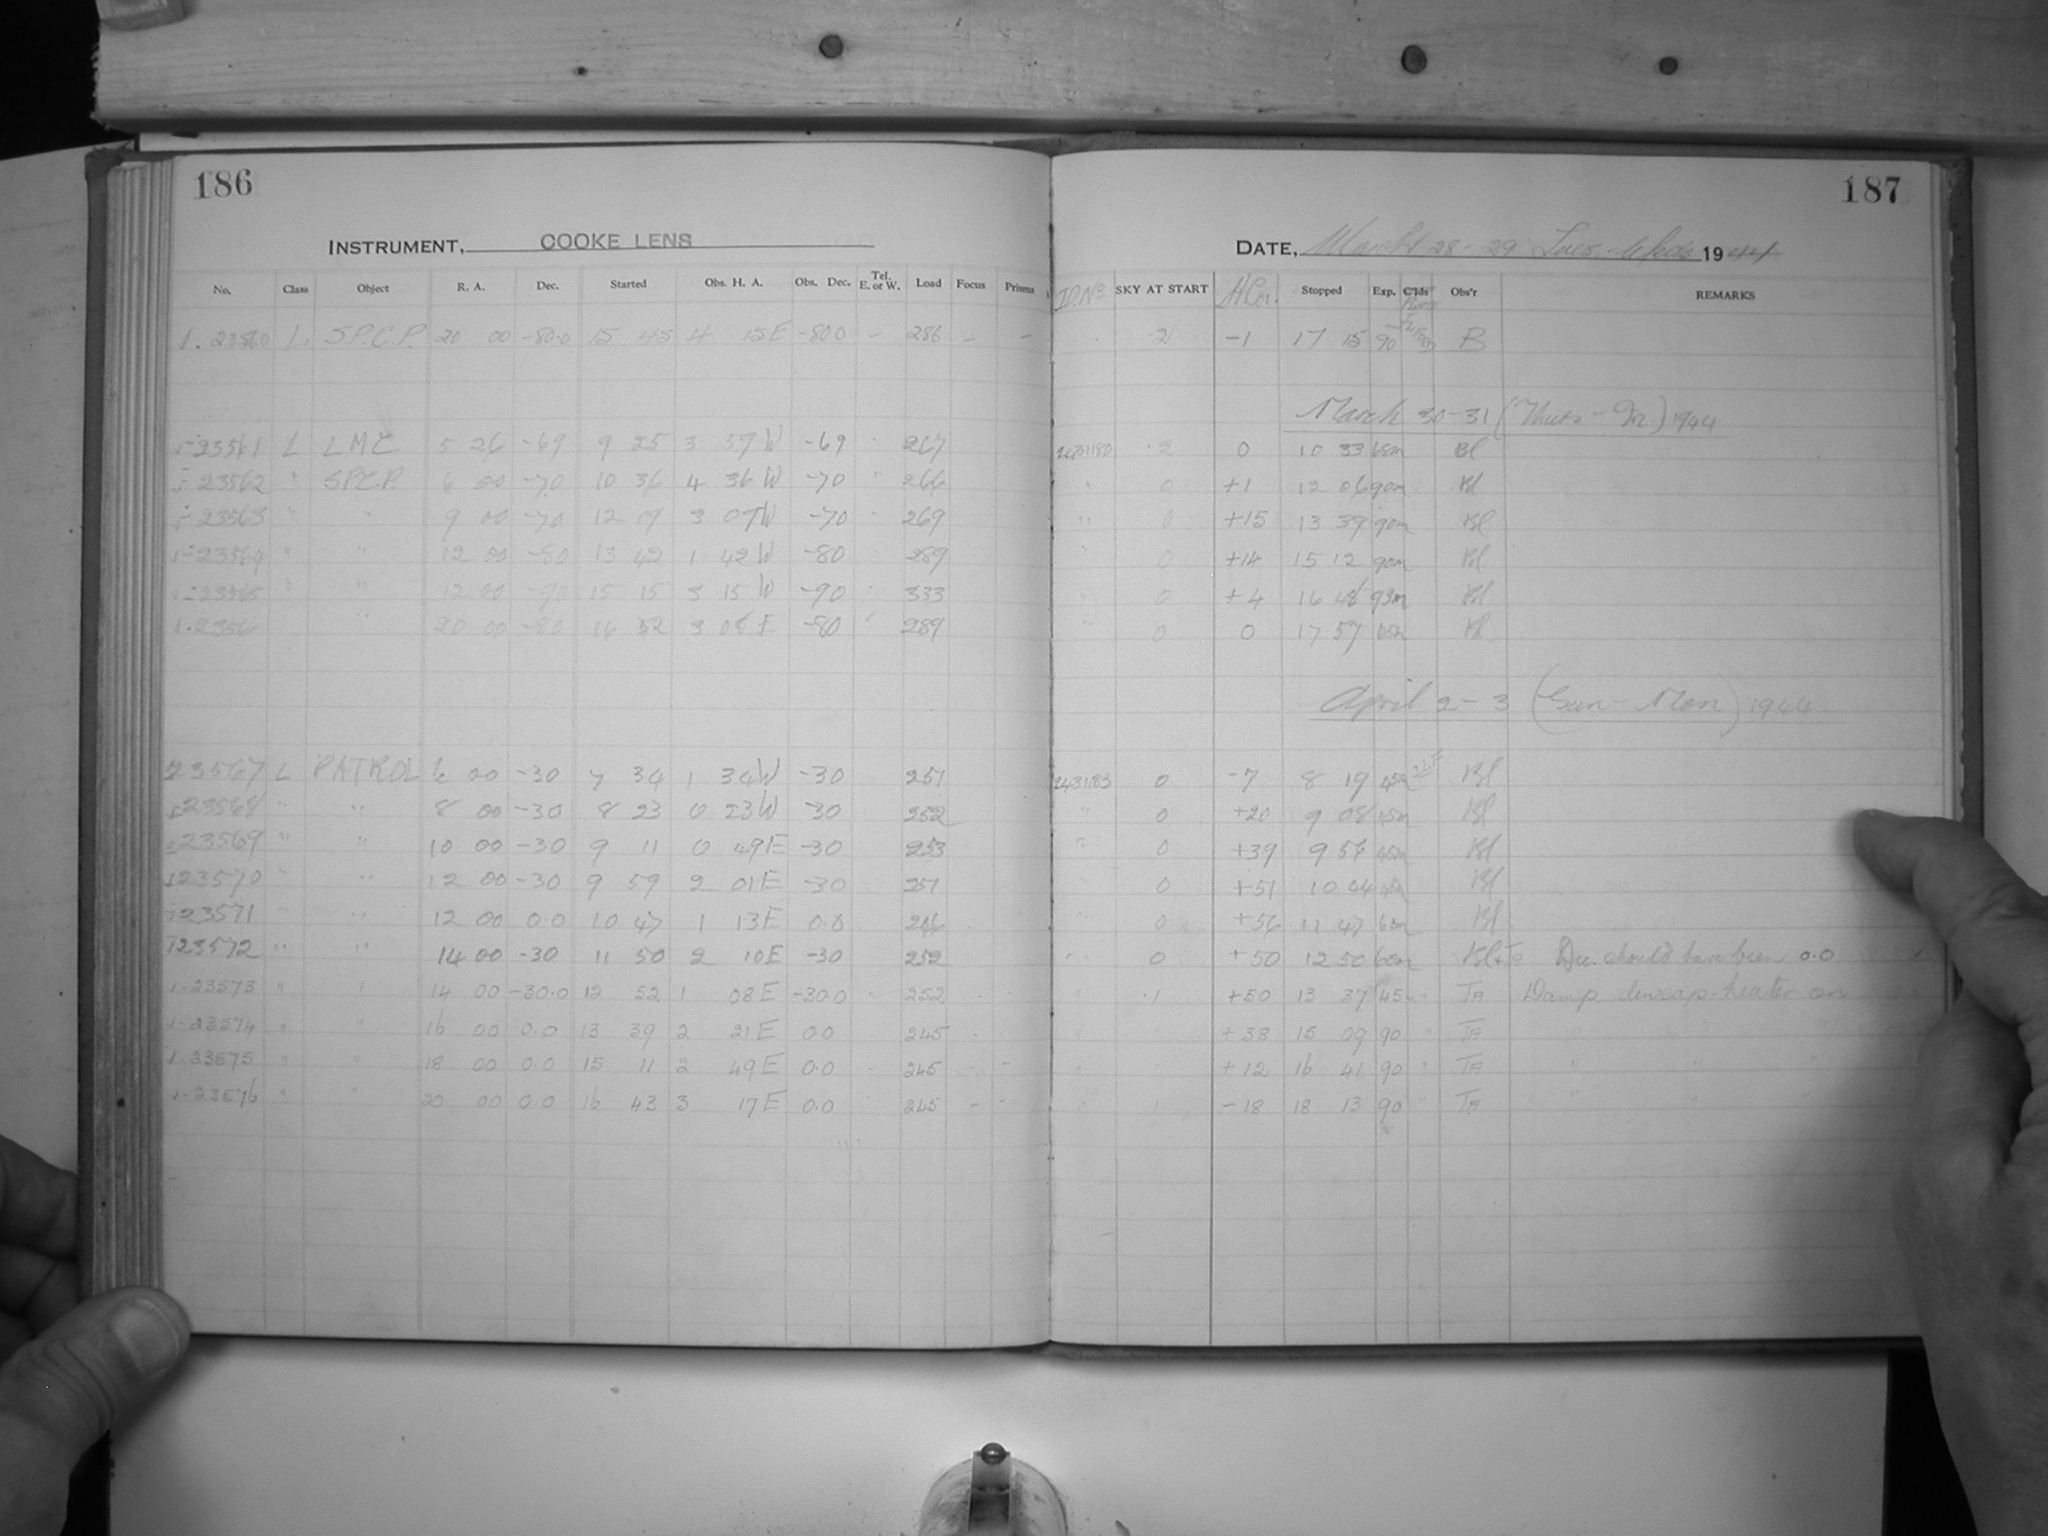 186
187
INSTRUMENT, COOKE LENS
DATE, March 28-29 Tues. Weds 1944
No. Class Object R. A. Dec. Started Obs. H. A. Obs. Dec. Tel. E. or W. Load Focus Prisms J.D. No SKY AT START H Cor. Stopped Exp. Obs'r REMARKS
1. 23560 L S.P.C.P. 20 00 -80.0 15 45 4 15E -80.0 - 286 - - .2 -1 17 15 90 B
March 30-31 (Thurs - Fri.) 1944
23561 L LMC 5 26 -69 9 25 3 57W -69 267 2431180 .2 0 10 33 68m Bl
23562 " S.P.C.P. 6 00 -70 10 36 4 36W -70 266 " 0 +1 12 06 90m Bl
23563 " " 9 00 -70 12 09 3 07W -70 269 " 0 +15 13 39 90m Bl
23564 " " 12 00 -80 13 42 1 42W -80 289 " 0 +14 15 12 90m Bl
23565 " " 12 00 -90 15 15 3 15W -90 333 " 0 +4 16 48 93m Bl
1. 2356 " 20 00 -80 16 52 3 08E -80 289 " 0 0 17 57 65m Bl
April 2-3 (Sun - Mon) 1944
23567 L PATROL 6 00 -30 7 34 1 34W -30 251 2431183 0 -7 8 19 45m Bl
23568 " " 8 00 -30 8 23 0 23W -30 252 " 0 +20 9 08 45m Bl
23569 " " 10 00 -30 9 11 0 49E -30 253 " 0 +39 9 56 45m Bl
23570 " " 12 00 -30 9 59 2 01E -30 251 0 +51 10 44 45m Bl
23571 " " 12 00 0.0 10 47 1 13E 0.0 246 0 +56 11 47 60m Bl
23572 " " 14 00 -30 11 50 2 10E -30 252 " 0 +50 12 50 60m Bl+TA Dec. should have been 0.0
1. 23573 " " 14 00 -30.0 12 52 1 08E -30.0 252 - - " .1 +50 13 37 45 TA Damp. dewcap heater on
1. 23574 " " 16 00 0.0 13 39 2 21E 0.0 245 " +38 15 09 90 " TA " "
1. 23575 " " 18 00 0.0 15 11 2 49E 0.0 245 - - " +12 16 41 90 " TA " "
1. 23576 " " 20 00 0.0 16 43 3 17E 0.0 245 - - " -18 18 13 90 " TA " "